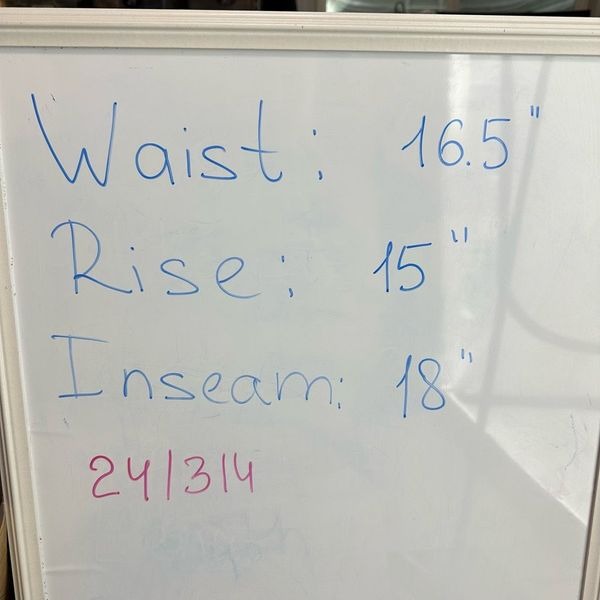 Waist: 16.5"
Rise: 15"
Inseam: 18"
24/3/4